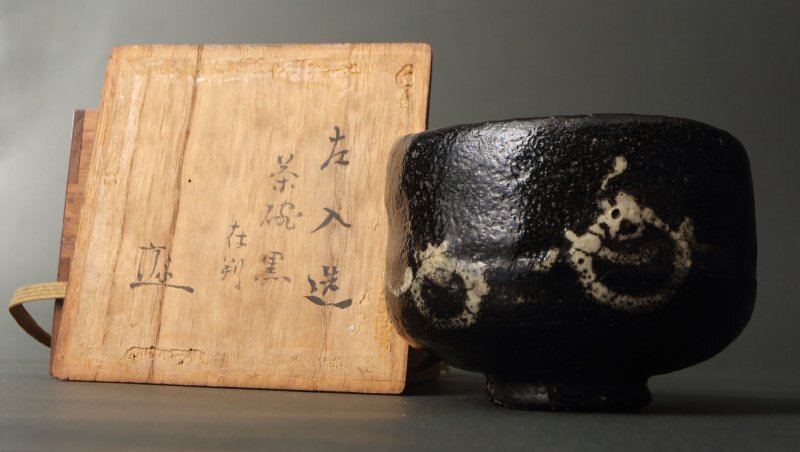 左入造
茶碗黒
在判